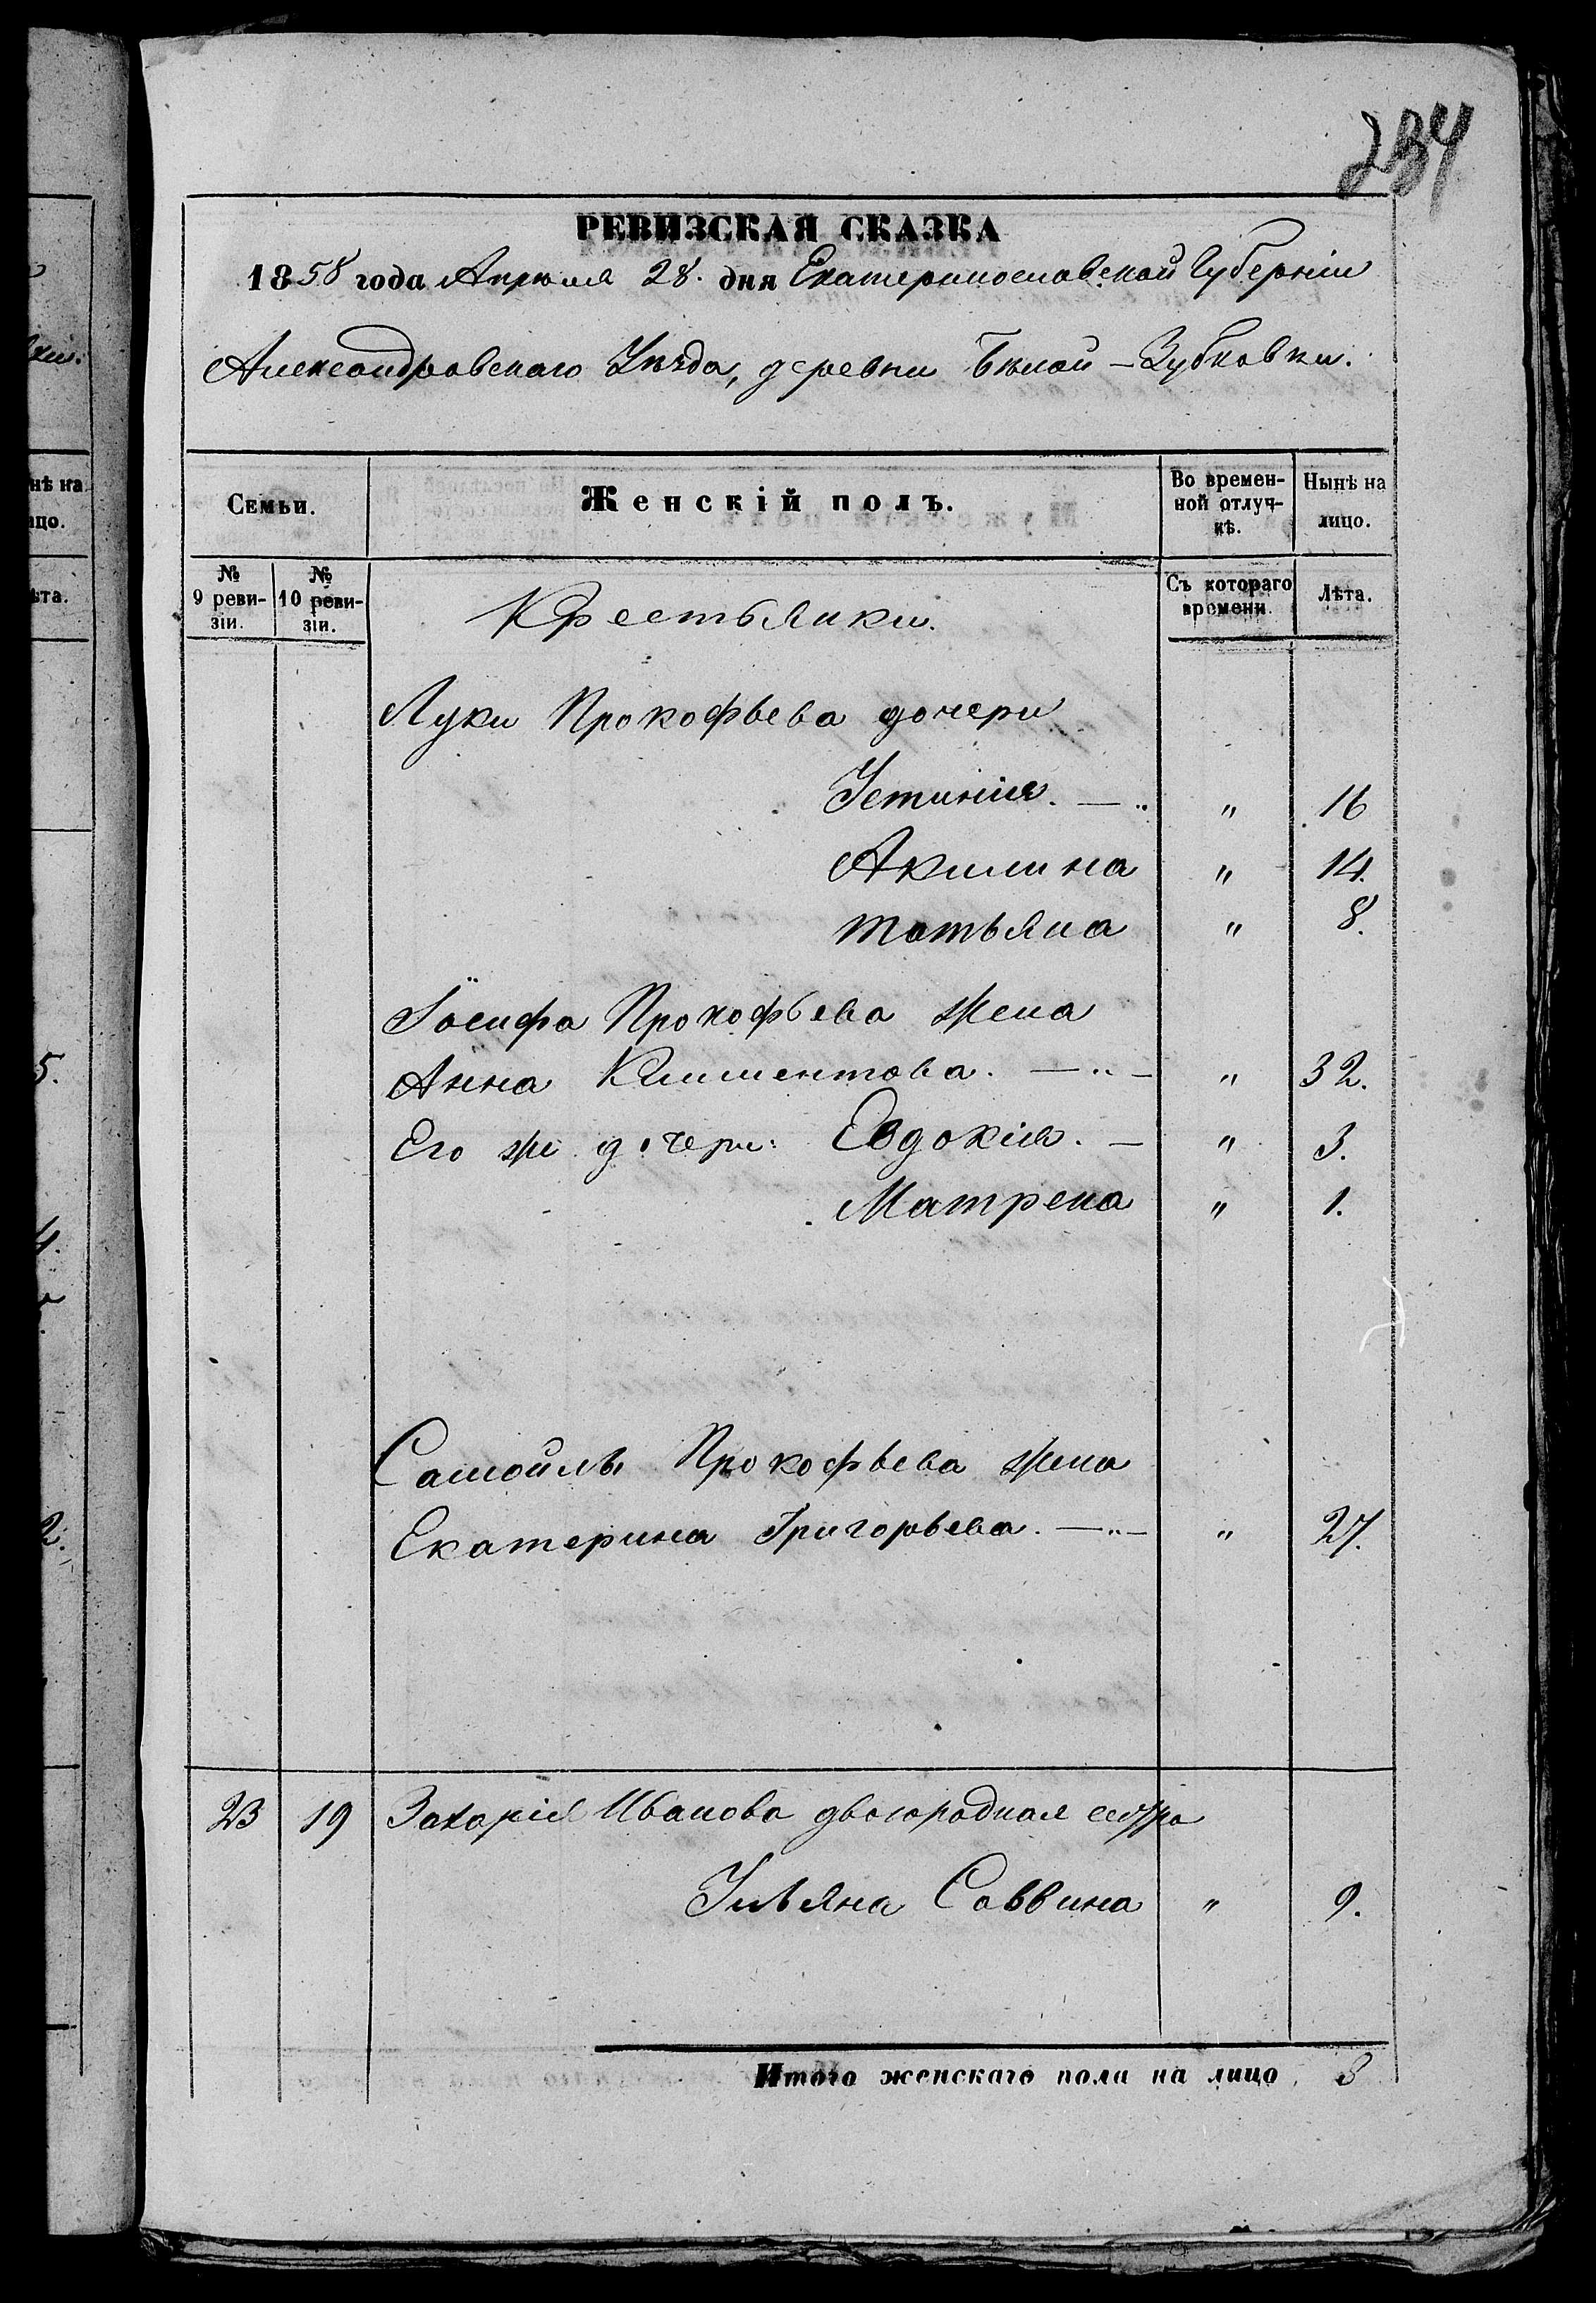 234
РЕВИЗСКАЯ СКАЗКА
1858 года Апрѣля 28. дня Екатеринославской Губерніи
Александровскаго Уѣзда, деревни Бѣлой-Зубковки.
Семьи.
Женскій полъ.
Во времен-
ной отлуч-
кѣ.
Нынѣ на
лицо.
№
9 реви-
зіи.
№
10 реви-
зіи.
Съ котораго
времени
Лѣта.
Крестьянки.
Луки Прокофьева дочери
Устинія. — „ 16
Акилина „ 14.
Татьяна „ 8.
Іосифа Прокофьева жена
Анна Климентова. — „ — „ 32.
Его же дочери: Евдокія. — „ 3.
Матрена „ 1.
Самойлы Прокофьева жена
Екатерина Григорьева. — „ — „ 27.
23 19 Захарія Иванова двоюродная сестра
Ульяна Саввина „ 9.
Итого женскаго пола на лицо 8
нѣ на
ицо.
ѣта.
5.
4.
2.